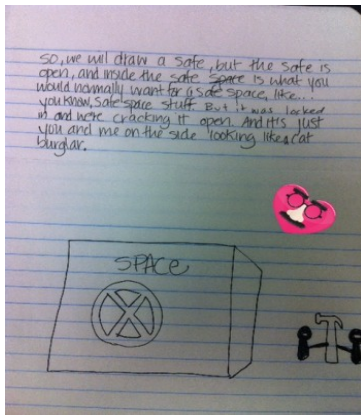 So, we will draw a safe, but the safe is
open, and inside the safe space is what you
would normally want for a safe space, like...
you know, safe space stuff. But it was locked
in and we're cracking it open. And it's just
you and me on the side looking like a cat
burglar.
SPACE